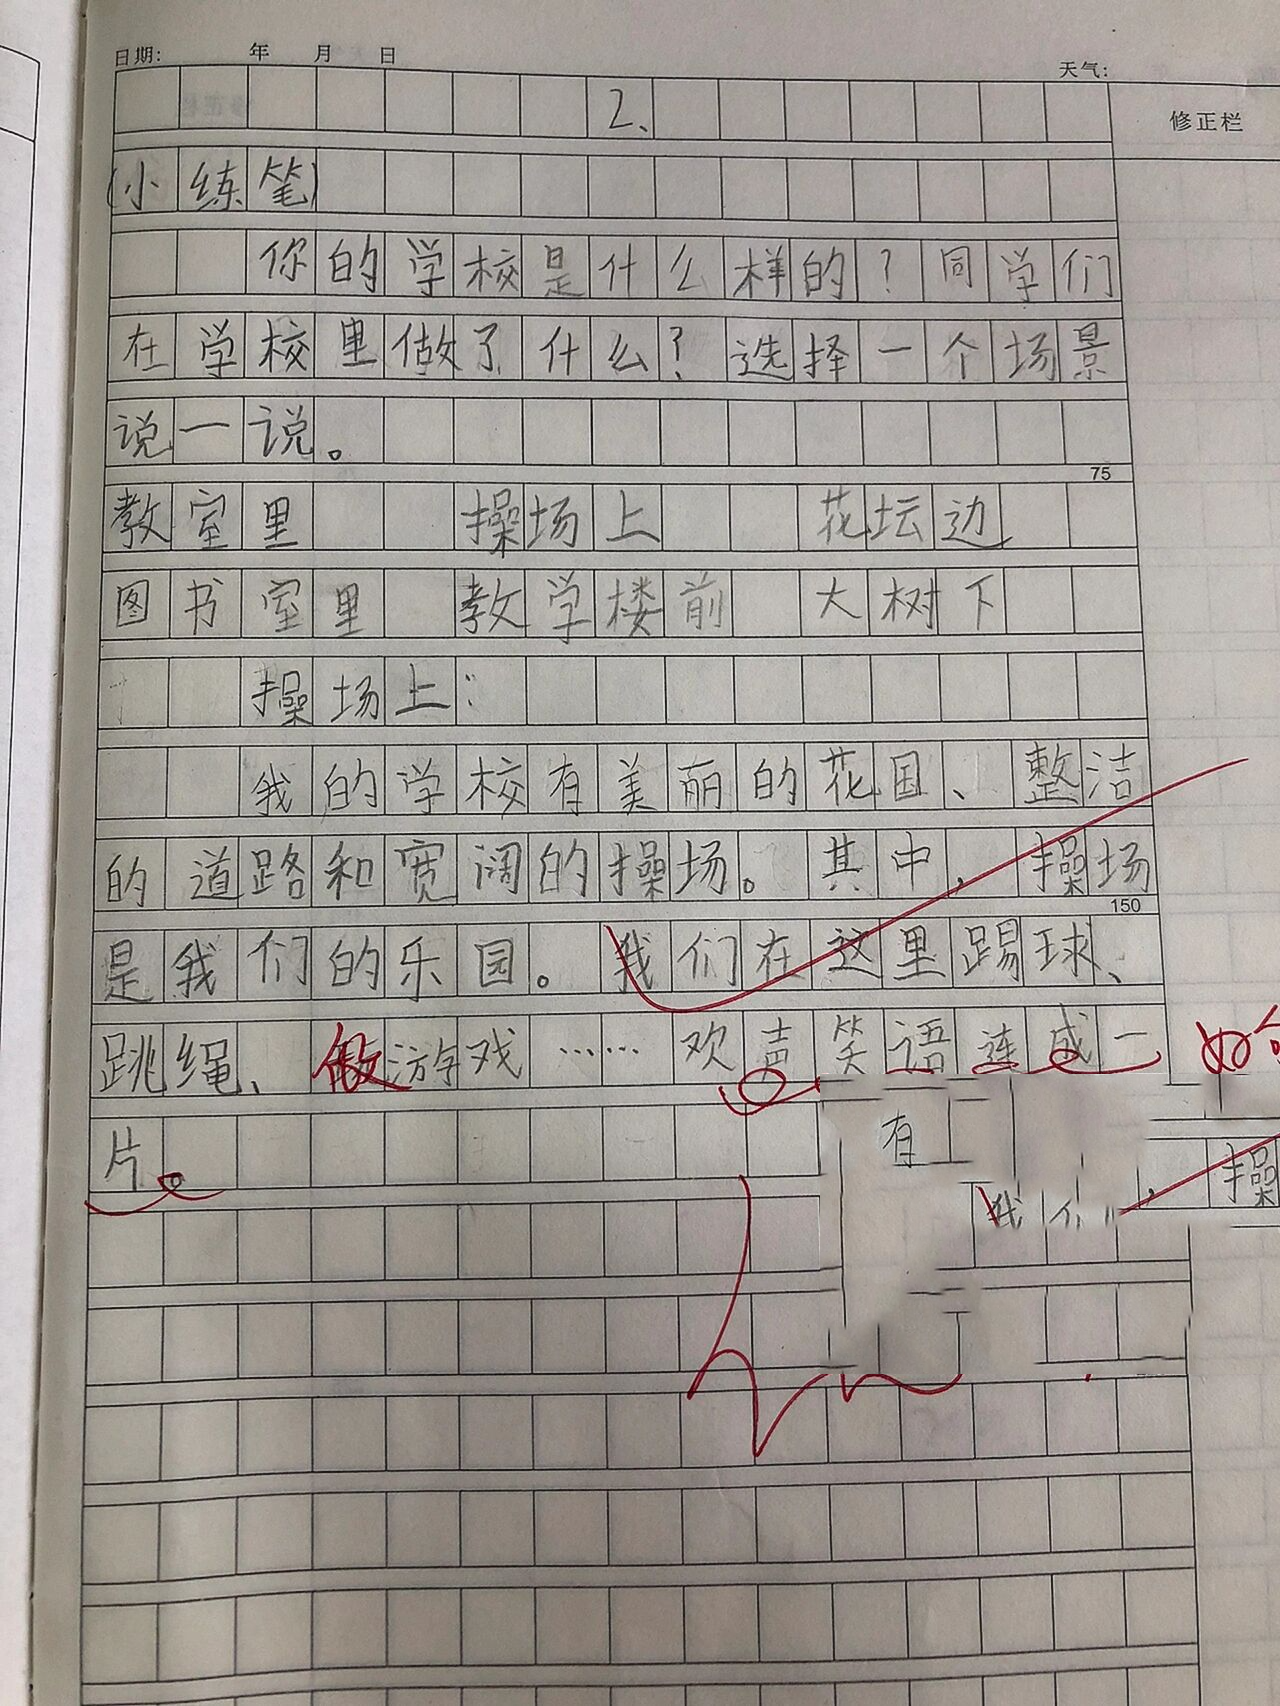 日期: 年 月 日 天气:
修正栏
2、
(小练笔)
你的学校是什么样的?同学们
在学校里做了什么?选择一个场景
说一说。
75
教室里 操场上 花坛边
图书室里 教学楼前 大树下
操场上:
我的学校有美丽的花园、整洁
的道路和宽阔的操场。其中,操场
150
是我们的乐园。我们在这里踢球、
跳绳、做游戏……欢声笑语连成一
片。
有
, 操
我们